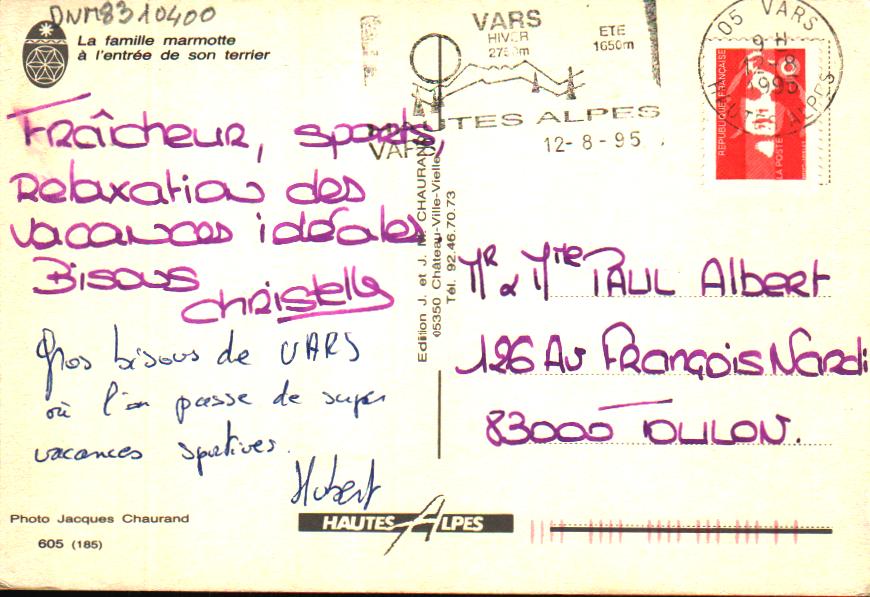 DNM8310400
La famille marmotte
à l'entrée de son terrier
VARS
HIVER
ETE
1650m
HAUTES ALPES
VARS
12-8-95
05 VARS
9 H
12-8
1995
HAUTES ALPES
REPUBLIQUE FRANÇAISE
LA POSTE
Fraîcheur, sports,
Relaxation des
vacances idéales.
Bisous
Christelle
Gros bisous de VARS
où l'on passe de super
vacances sportives.
Hubert
Edition J. et J. M. CHAURAND
05350 Château-Ville-Vielle
Tél. 92.46.70.73
Mr & Mme PAUL Albert
126 Av François Nardi
83000 TOULON.
Photo Jacques Chaurand
605 (185)
HAUTES ALPES